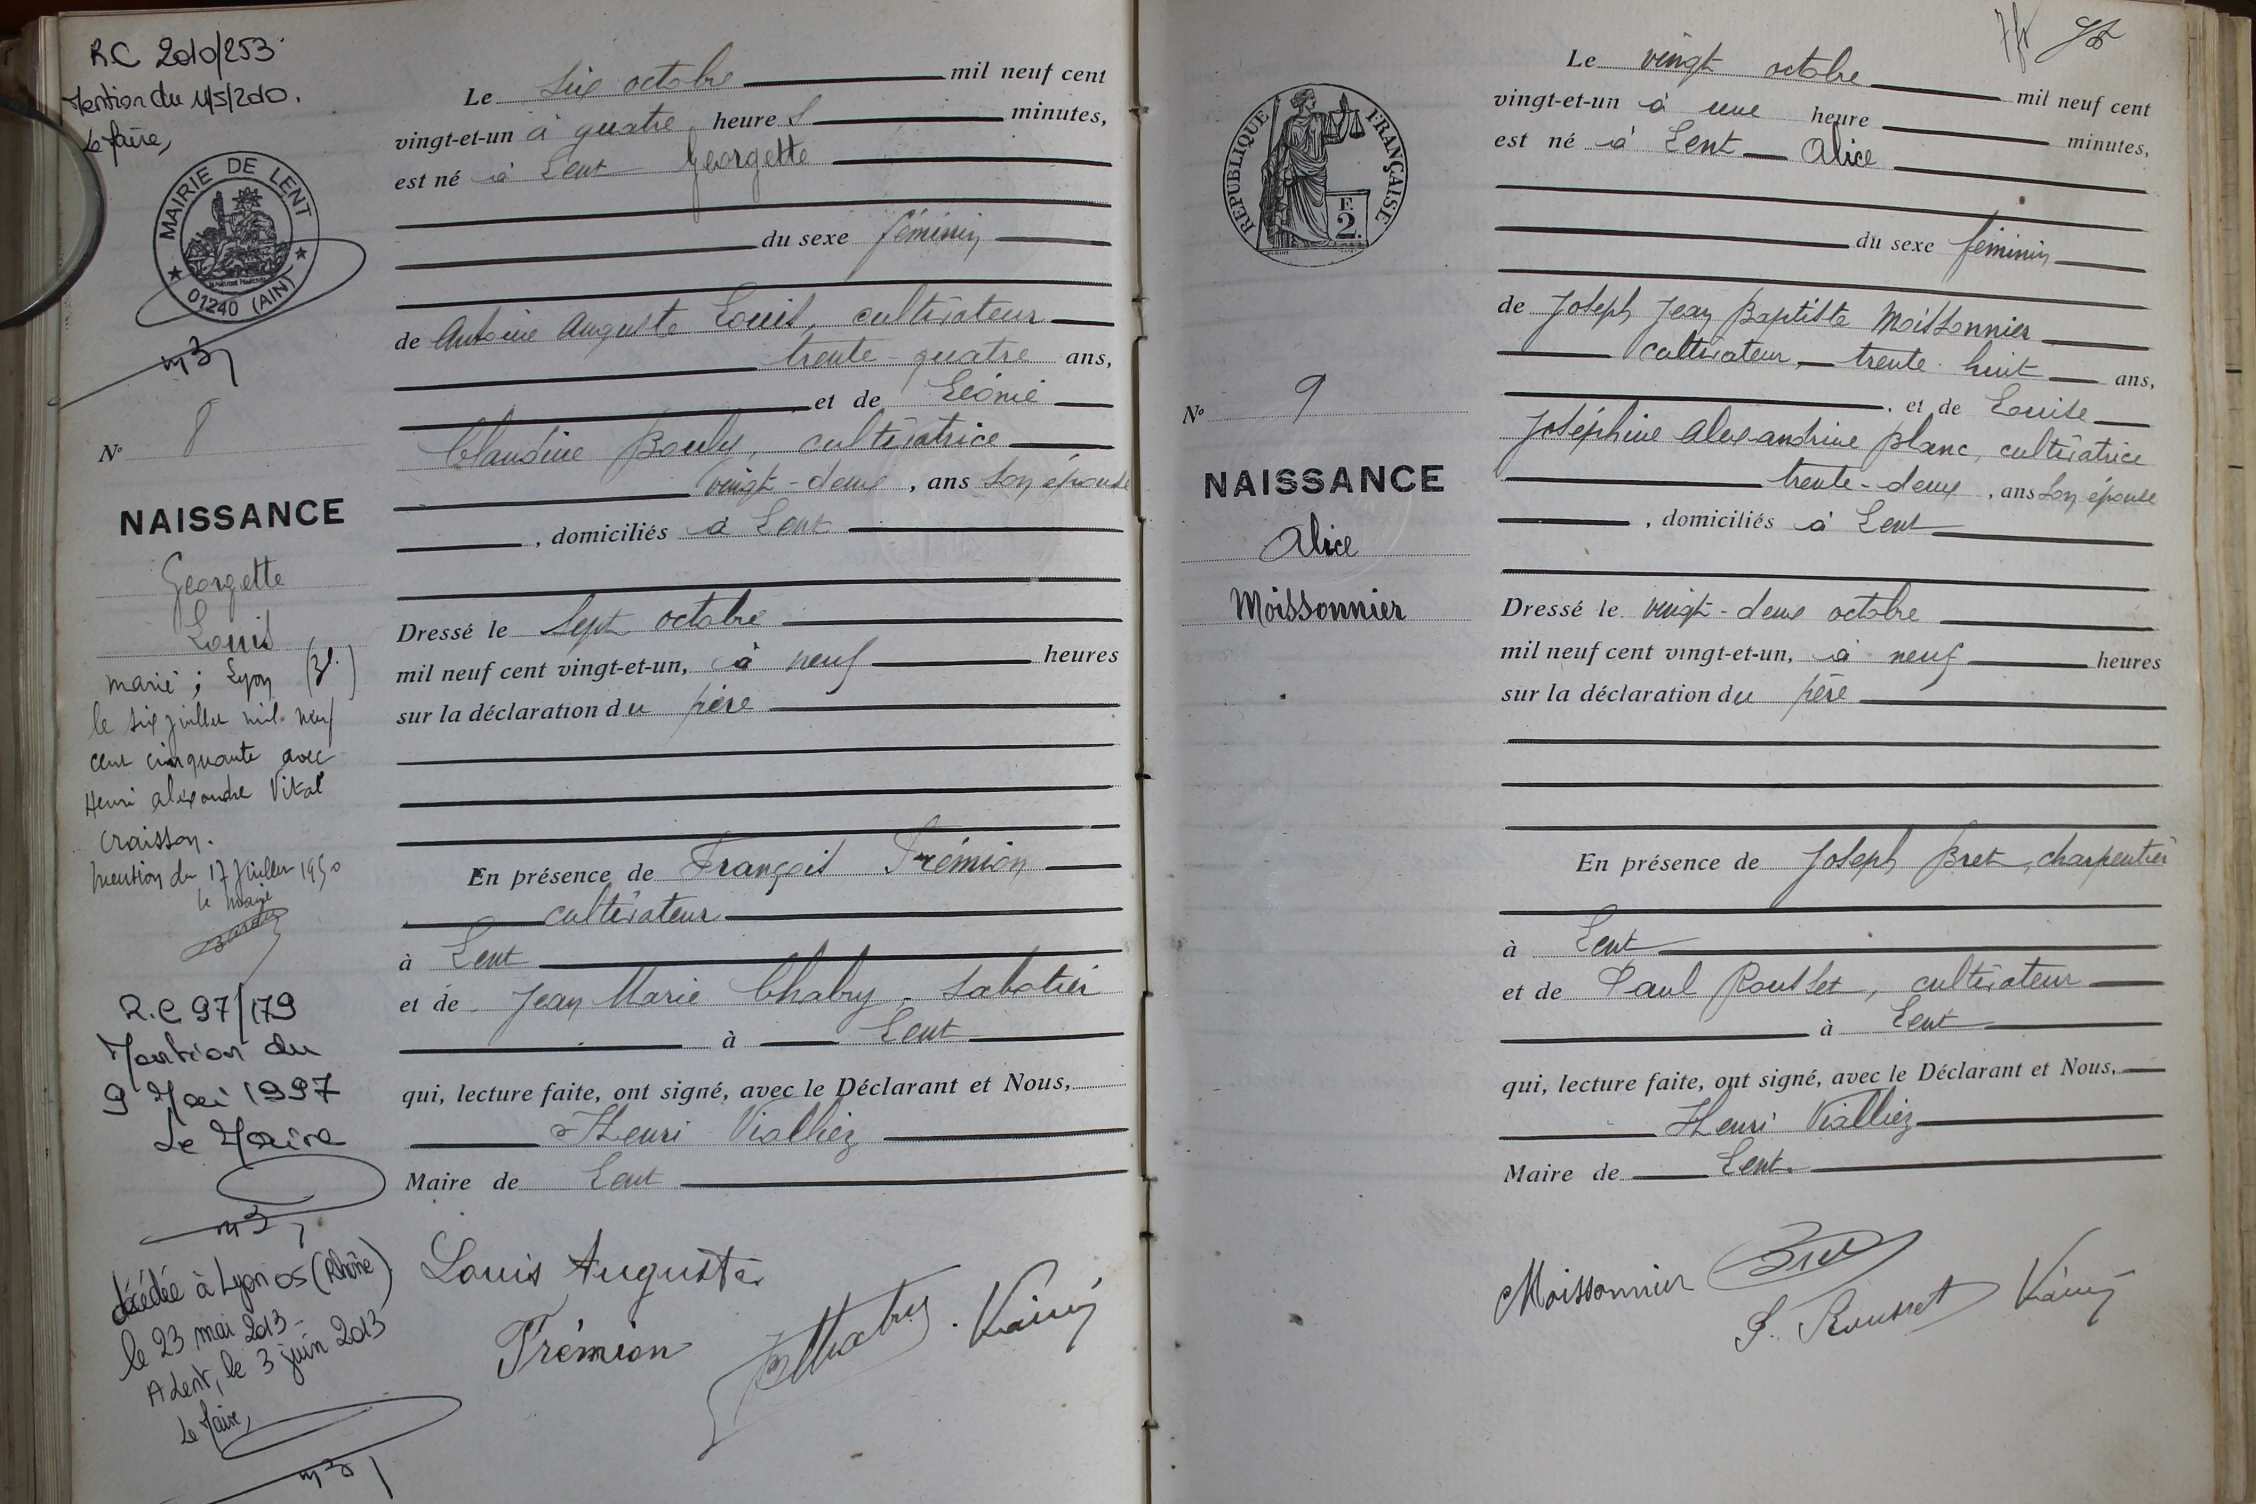 R.C 2010/253
Mention du 11/5/2010.
Le Maire,
MAIRIE DE LENT
01240 (AIN)
N° 8
NAISSANCE
Georgette
Louis
marié à Lyon (3e)
le six juillet mil neuf
cent cinquante avec
Henri Alexandre Vital
Craisson.
Mention du 17 Juillet 1950
le Maire
R.C 97/179
Mention du
9 Mai 1997
Le Maire
décédée à Lyon 05 (Rhône)
le 23 mai 2013
A Lent, le 3 juin 2013
Le Maire,
Le six octobre mil neuf cent
vingt-et-un à quatre heures minutes,
est né à Lent Georgette
du sexe féminin
de Antoine Auguste Louis, cultivateur
trente-quatre ans,
et de Léonie
Claudine Bouly, cultivatrice
vingt-deux, ans son épouse
, domiciliés à Lent
Dressé le sept octobre
mil neuf cent vingt-et-un, à neuf heures
sur la déclaration du père
En présence de François Trémion
cultivateur
à Lent
et de Jean Marie Chabry, sabotier
à Lent
qui, lecture faite, ont signé, avec le Déclarant et Nous,
Henri Vialliez
Maire de Lent
Louis Auguste
Trémion
RÉPUBLIQUE FRANÇAISE
F.
2.
N° 9
NAISSANCE
Alice
Moissonnier
Le vingt octobre mil neuf cent
vingt-et-un à une heure minutes,
est né à Lent Alice
du sexe féminin
de Joseph Jean Baptiste Moissonnier
cultivateur, trente huit ans,
et de Louise
Joséphine Alexandrine Blanc, cultivatrice
trente-deux, ans son épouse
, domiciliés à Lent
Dressé le vingt-deux octobre
mil neuf cent vingt-et-un, à neuf heures
sur la déclaration du père
En présence de Joseph Bret, charpentier
à Lent
et de Paul Rousset, cultivateur
à Lent
qui, lecture faite, ont signé, avec le Déclarant et Nous,
Henri Vialliez
Maire de Lent.
Moissonnier Bret
P. Rousset